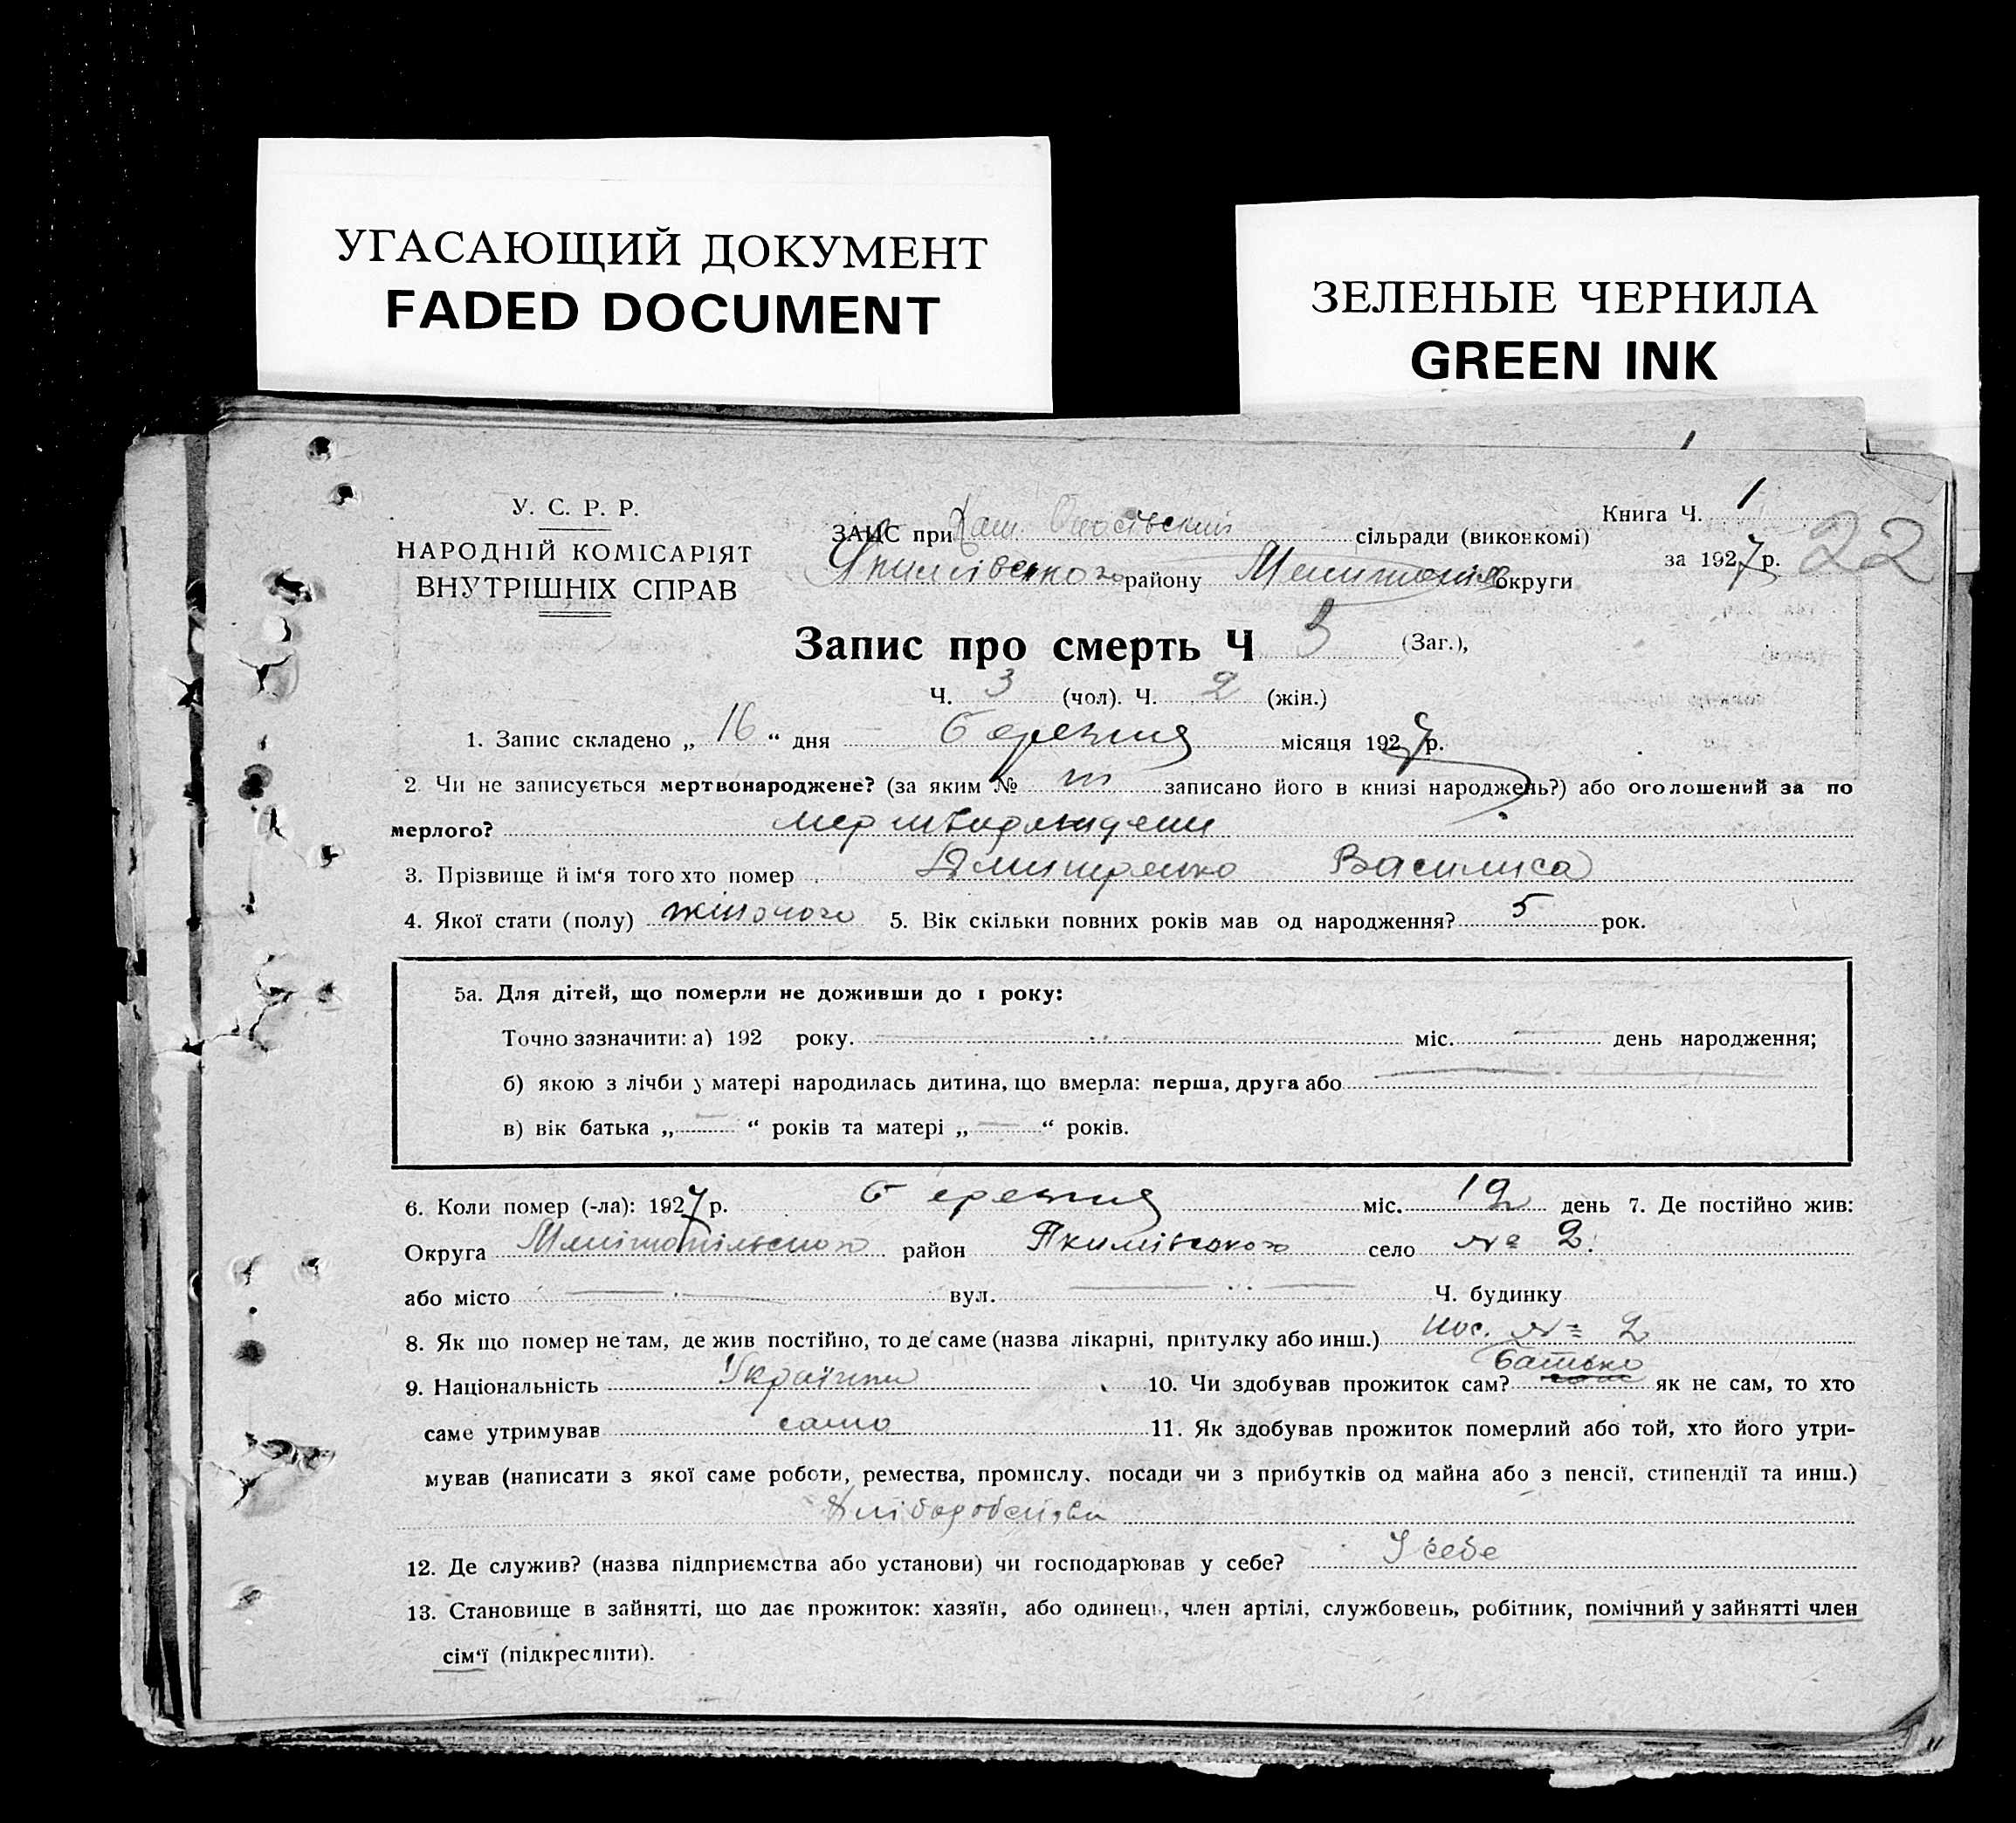 УГАСАЮЩИЙ ДОКУМЕНТ
FADED DOCUMENT
ЗЕЛЕНЫЕ ЧЕРНИЛА
GREEN INK
У. С. Р. Р.
НАРОДНІЙ КОМІСАРІЯТ
ВНУТРІШНІХ СПРАВ
ЗАГС при сільради (виконкомі)
Якимівського району округи
Книга Ч. 1
за 1927 р.
22
Запис про смерть Ч 5 (Заг.),
Ч. 3 (чол). Ч. 2 (жін.)
1. Запис складено „ 16 “ дня березня місяця 1927 р.
2. Чи не записується мертвонароджене? (за яким № записано його в книзі народжень?) або оголошений за по
мерлого?
3. Прізвище й ім‘я того хто помер Дмитренко Василиса
4. Якої стати (полу) жіночого 5. Вік скільки повних років мав од народження? 5 рок.
5а. Для дітей, що померли не доживши до 1 року:
Точно зазначити: а) 192 року. міс. день народження;
б) якою з лічби у матері народилась дитина, що вмерла: перша, друга або
в) вік батька „ — “ років та матері „ — “ років.
6. Коли помер (-ла): 1927 р. березня міс. 12 день 7. Де постійно жив:
Округа Мелітопільського район Якимівського село № 2.
або місто — вул. — Ч. будинку
8. Як що помер не там, де жив постійно, то де саме (назва лікарні, притулку або инш.) пос. № 2
9. Національність 10. Чи здобував прожиток сам? батько як не сам, то хто
саме утримував 11. Як здобував прожиток померлий або той, хто його утри-
мував (написати з якої саме роботи, ремества, промислу, посади чи з прибутків од майна або з пенсії, стипендії та инш.)
12. Де служив? (назва підприємства або установи) чи господарював у себе? У себе
13. Становище в зайнятті, що дає прожиток: хазяїн, або одинець, член артілі, службовець, робітник, помічний у зайнятті член
сім‘ї (підкреслити).